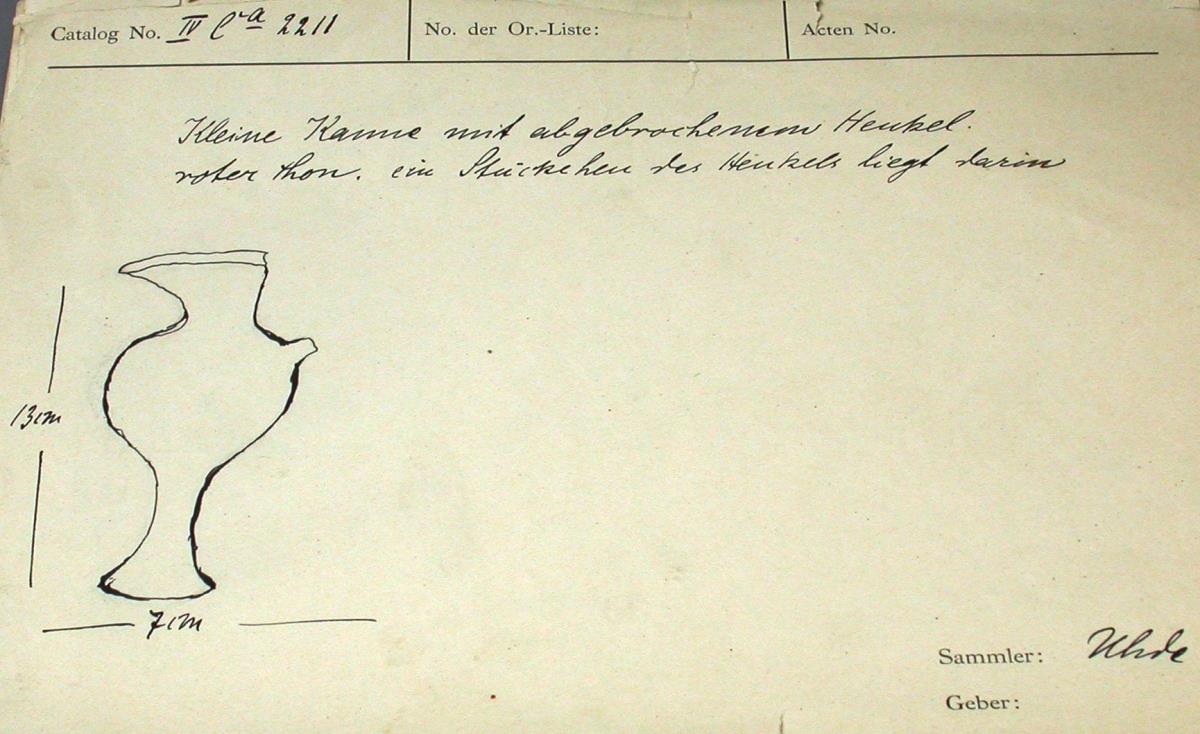 Catalog No. IV Ca 2211
No. der Or.-Liste:
Acten No.
Kleine Kanne mit abgebrochenem Henkel.
roter Thon. ein Stückchen des Henkels liegt darin
13cm
7cm
Sammler: Uhde
Geber: